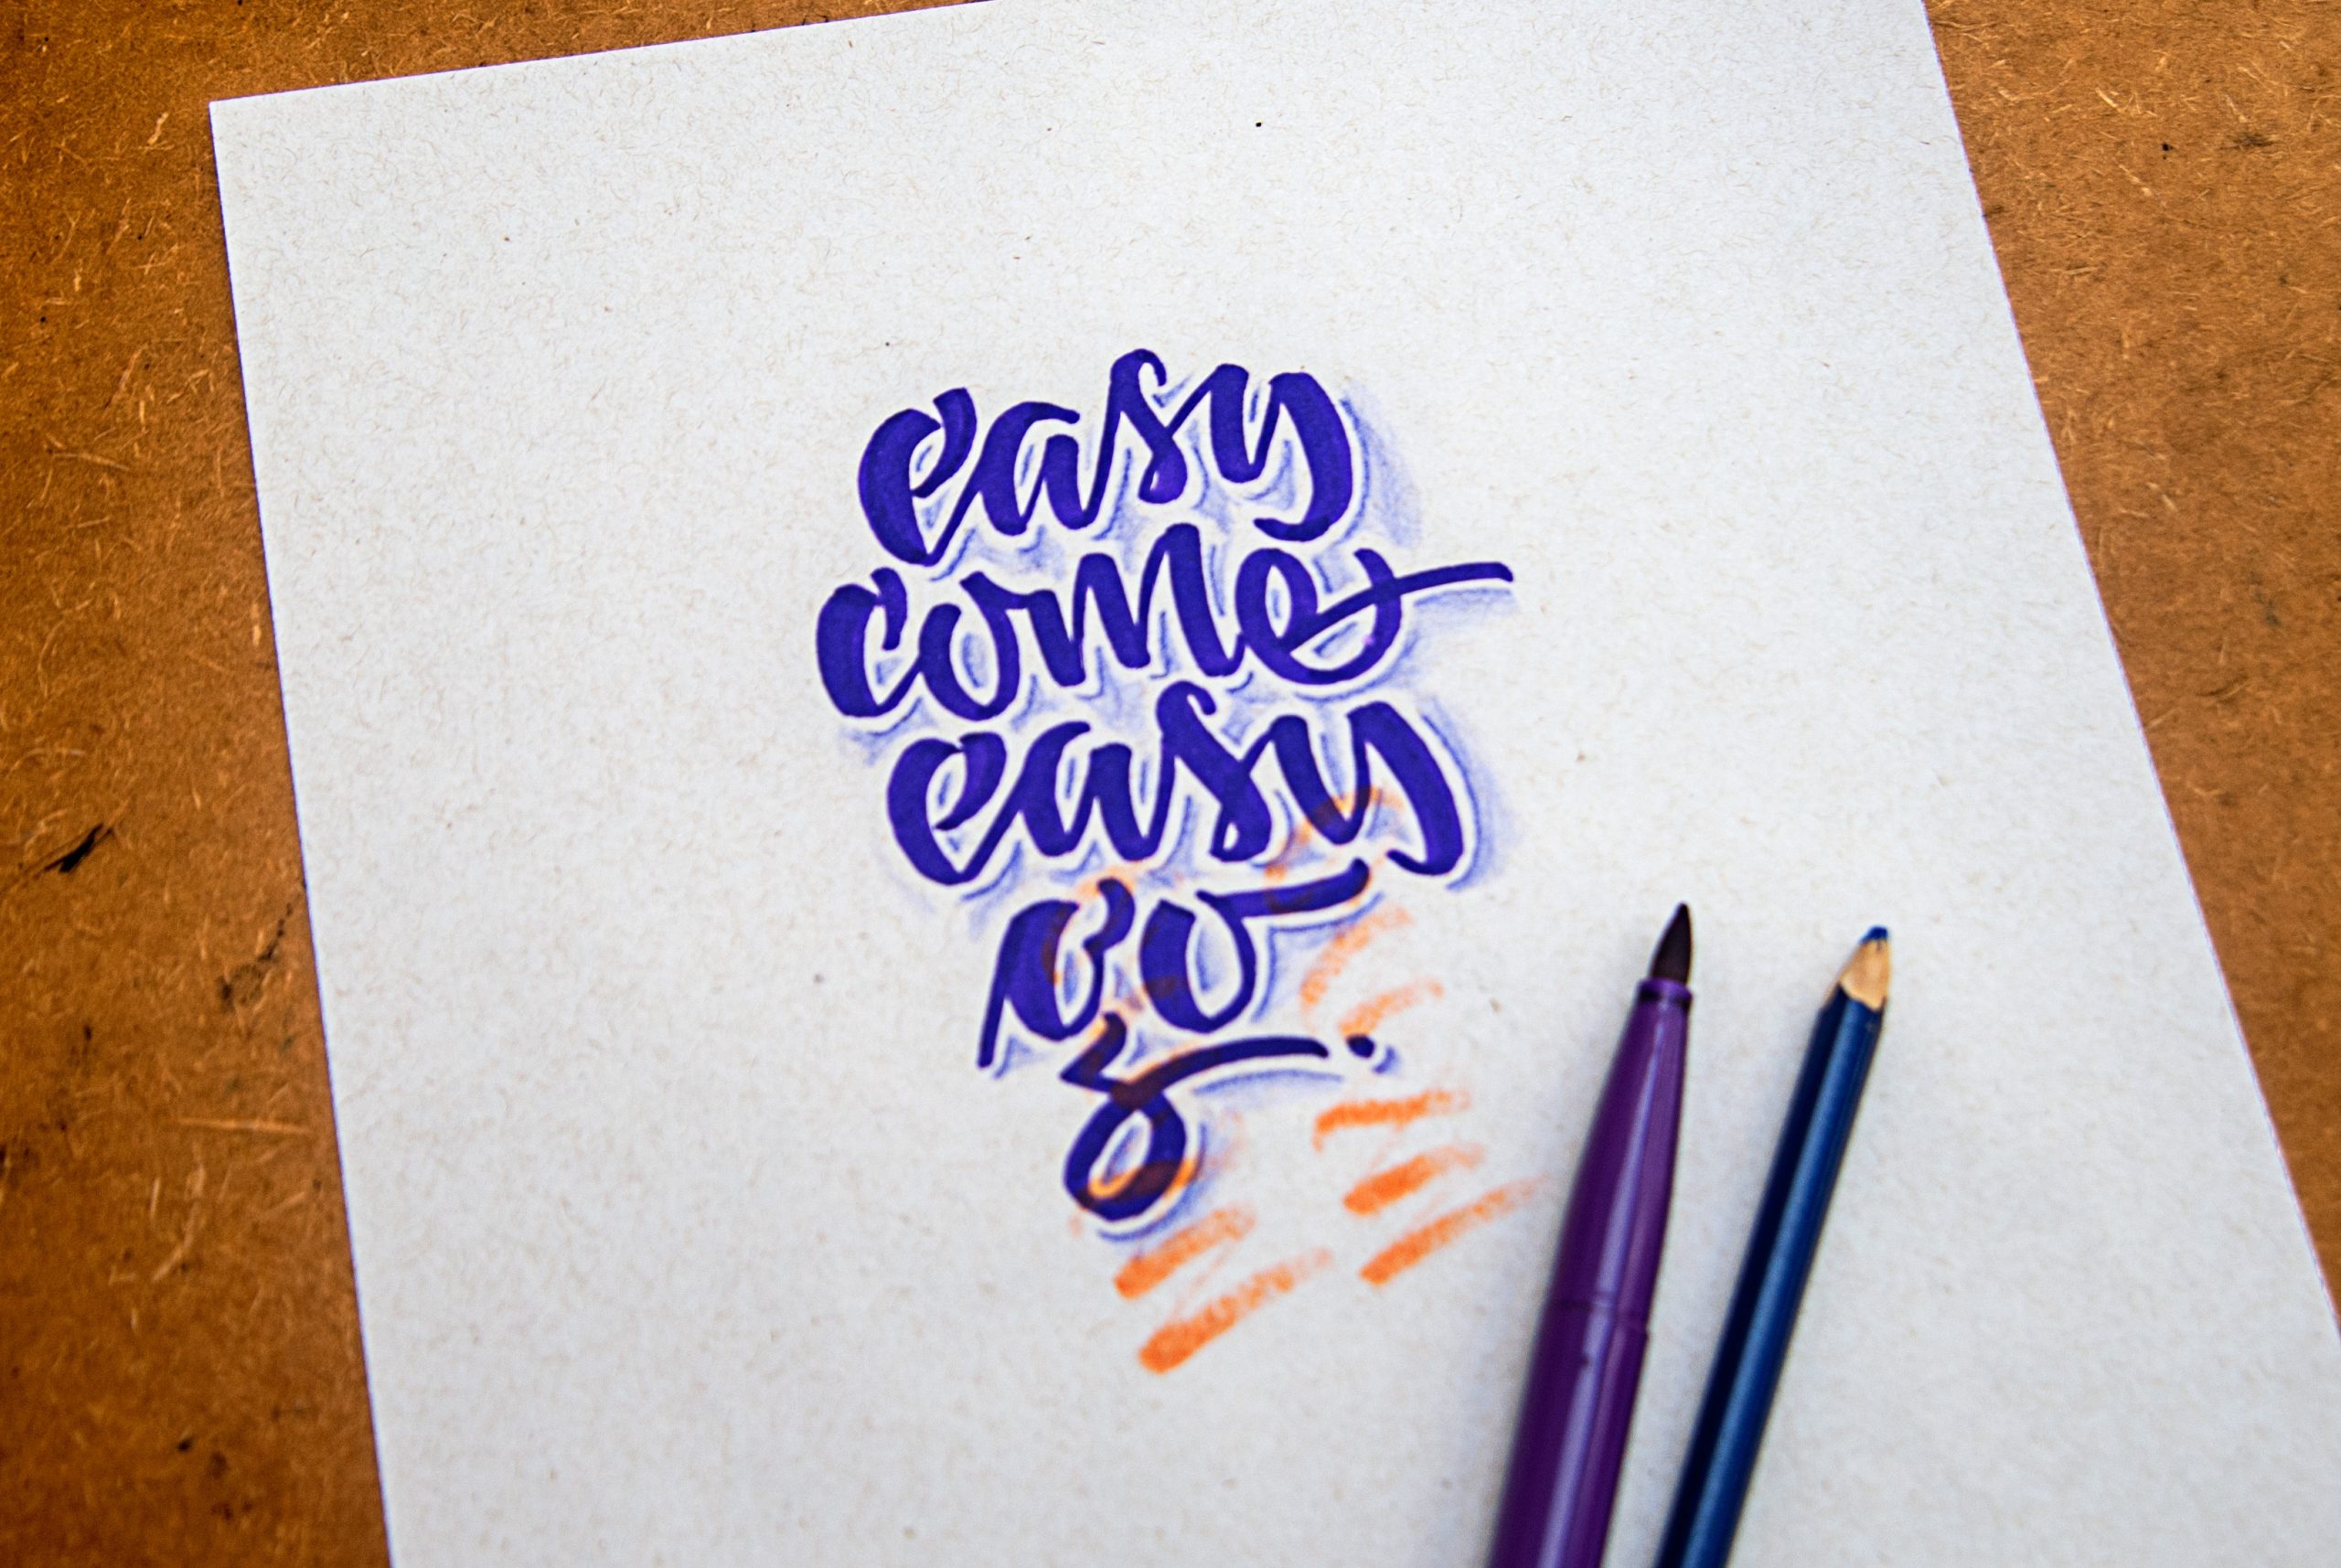 easy
come
easy
go.